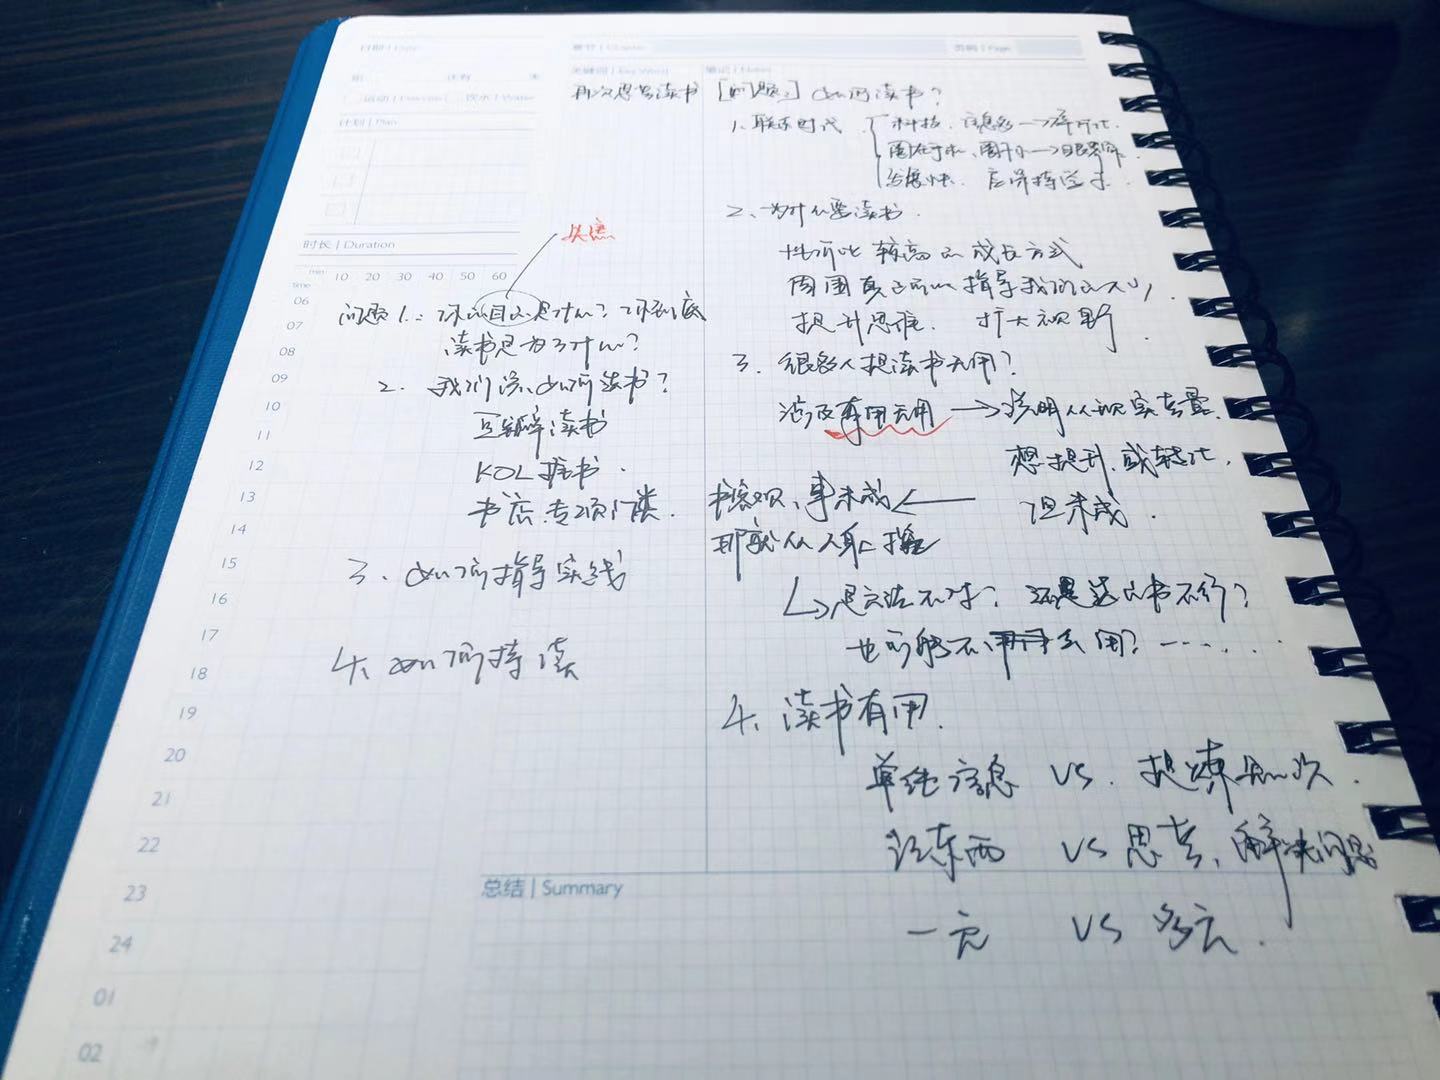 日期 | Date
章节 | Chapter
页码 | Page
关键词 | Key Word
笔记 | Notes
还有
运动 | Exercise
饮水 | Water
计划 | Plan
时长 | Duration
min 10 20 30 40 50 60
time
06
07
08
09
10
11
12
13
14
15
16
17
18
19
20
21
22
23
24
01
02
再次思考读书
焦
问题1.: 你的目的是什么? 你到底
读书是为了什么?
2. 我们该如何读书?
豆瓣 读书
KOL 推书.
书店.专项门类.
3、如何指导实践
4、如何持读
[问题2] 如何读书?
1、联系时代
科技. 信息多→碎片化.
发展快. 应保持学习.
2、为什么要读书.
性价比较高的成长方式
周围真正可以指导我们的人少
提升思维. 扩大视野
3. 很多人提读书无用?
涉及有用无用→说明从现实考量.
想提升,或转化,
但未成.
书客观、事未成←
那就从人身上找
↳是方法不对? 还是选的书不行?
也可能不用去用?……
4、读书有用.
单纯信息 VS. 提炼知识.
记东西 VS 思考、解决问题
一元 VS 多元.
总结 | Summary